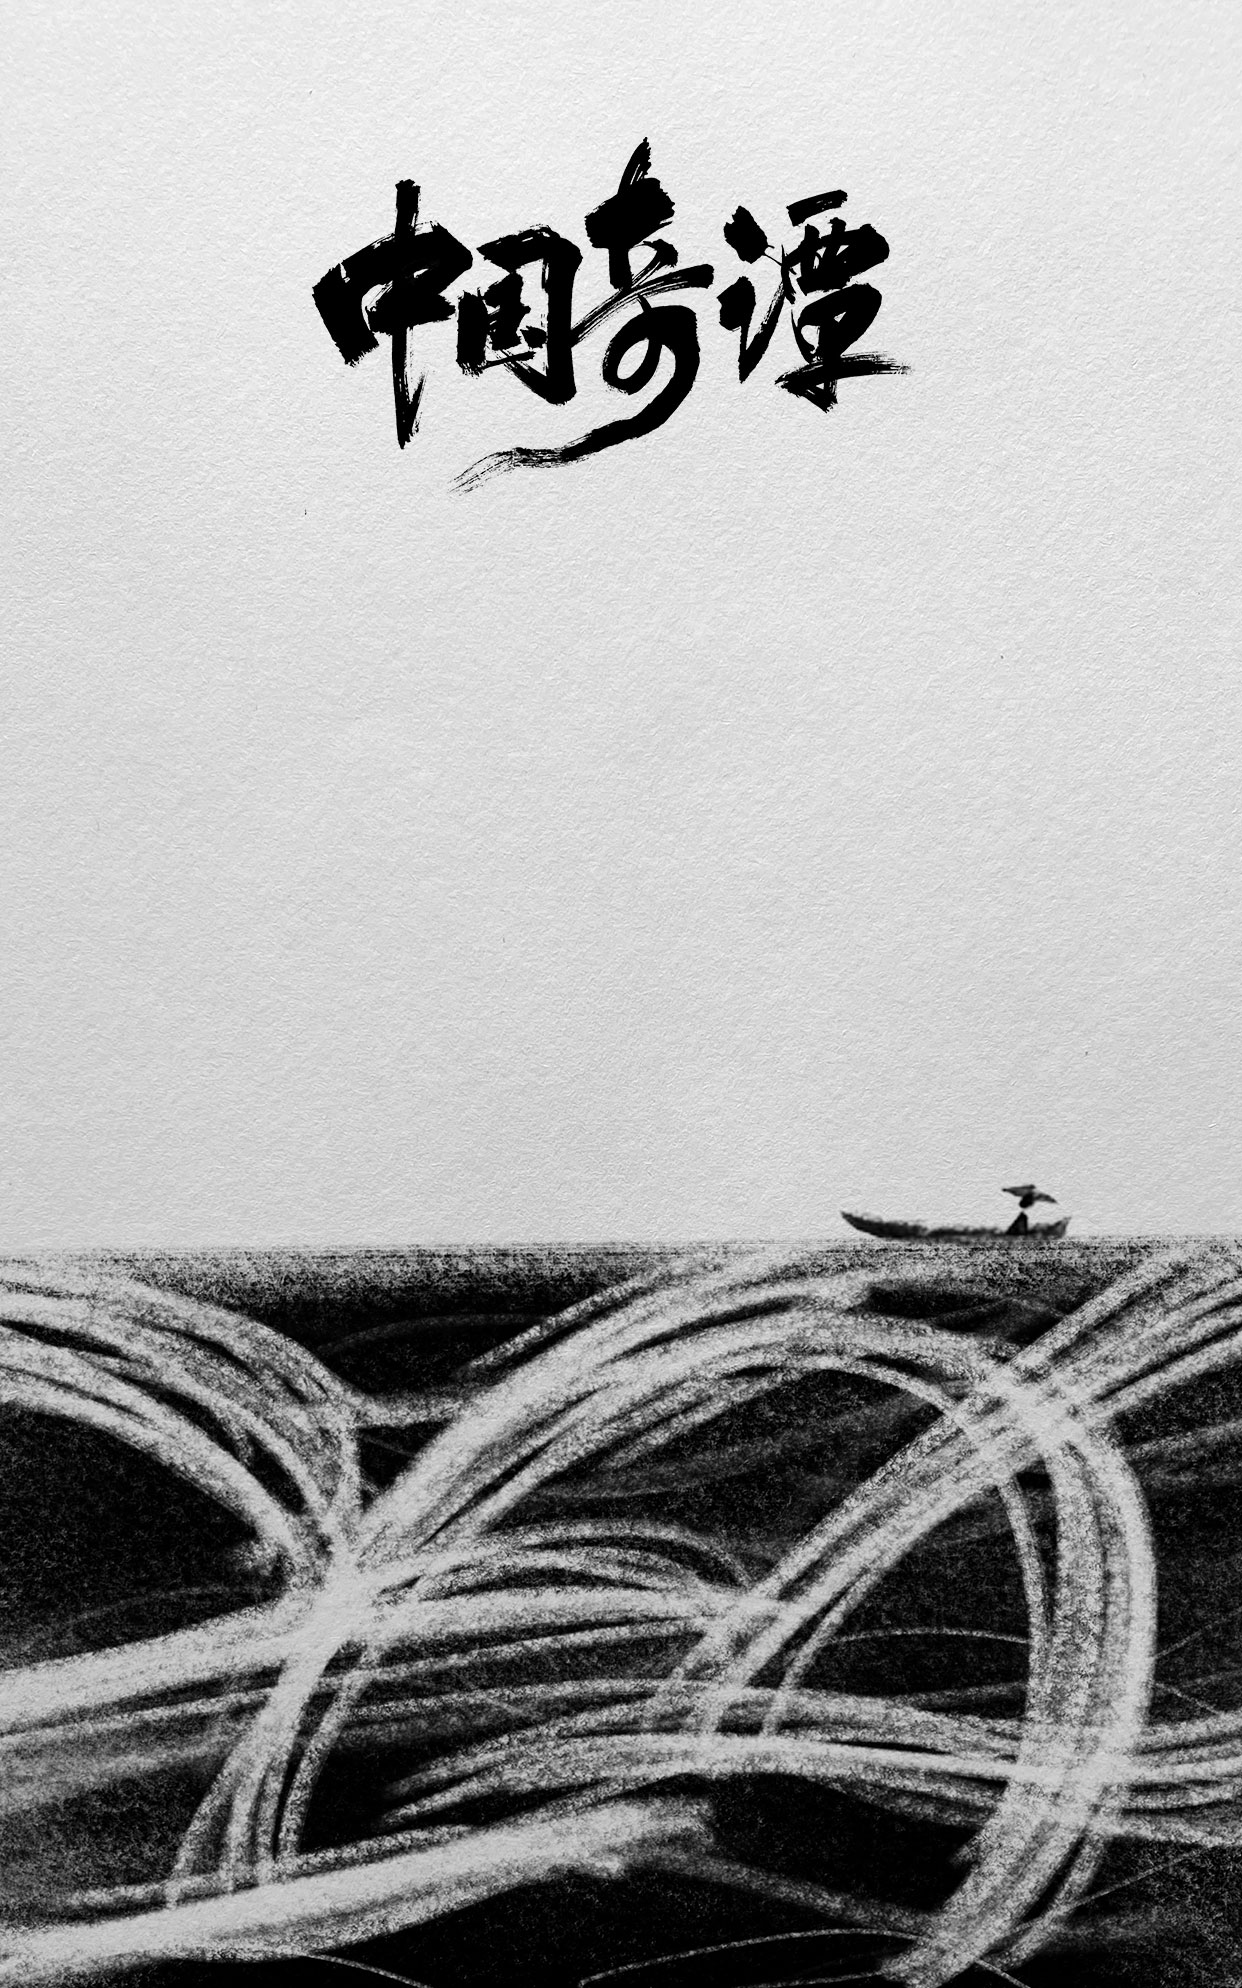 中国奇谭